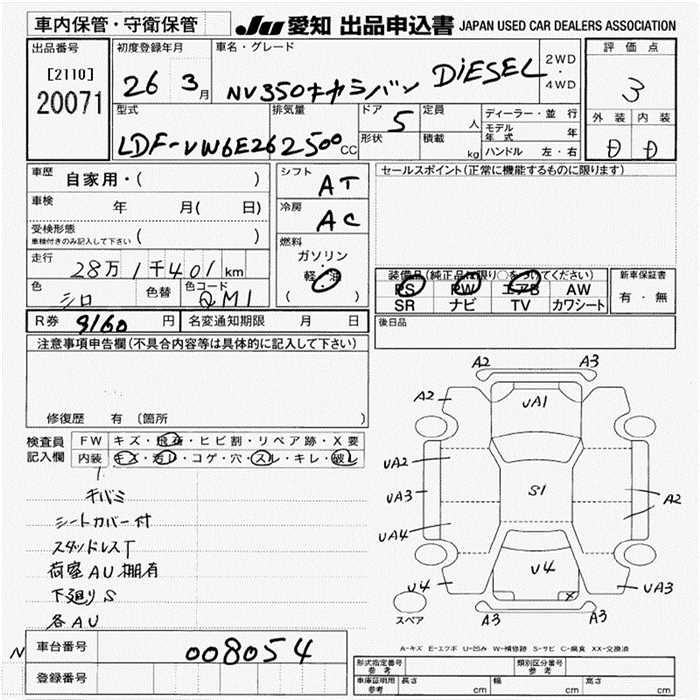 車内保管・守衛保管
JU 愛知 出品申込書 JAPAN USED CAR DEALERS ASSOCIATION
出品番号
[2110]
20071
初度登録年月
26 3月
車名・グレード
NV350キャラバン DIESEL
2WD
・
4WD
評価点
3
外装 内装
D D
型式
LDF-VW6E26
排気量
2500cc
ドア 5
形状
定員 人
積載 kg
ディーラー・並行
モデル年式 年
ハンドル 左・右
車歴 自家用・( )
車検 年 月( 日)
受検形態
車検付きのみ記入して下さい ( )
走行 28万1千401km
色 シロ 色替 色コード QM1
シフト AT
冷房 AC
燃料
ガソリン
軽・油
( )
セールスポイント(正常に機能するものに限ります)
装備品(純正品に限り○をつけてください)
PS PW エアB AW
SR ナビ TV カワシート
新車保証書
有・無
R券 9160円 名変通知期限 月 日
後日品
注意事項申告欄(不具合内容等は具体的に記入して下さい)
修復歴 有 〔箇所 〕
検査員
記入欄
FW キズ・飛石・ヒビ割・リペア跡・X要
内装 キズ・汚レ・コゲ・穴・スレ・キレ・破レ
キバミ
シートカバー付
スタッドレスT
荷室AU棚有
下廻りS
各AU
A2 A3
A2 UA1
UA2
UA3 S1 A2
UA4
U4 U4 UA3
X
A3 A3
スペア
A-キズ E-エクボ U-凹み W-補修跡 S-サビ C-腐食 XX-交換済
N
車台番号 008054
登録番号
型式指定番号
参考
類別区分番号
参考
車庫証明用
参考
長さ cm 幅 cm 高さ cm